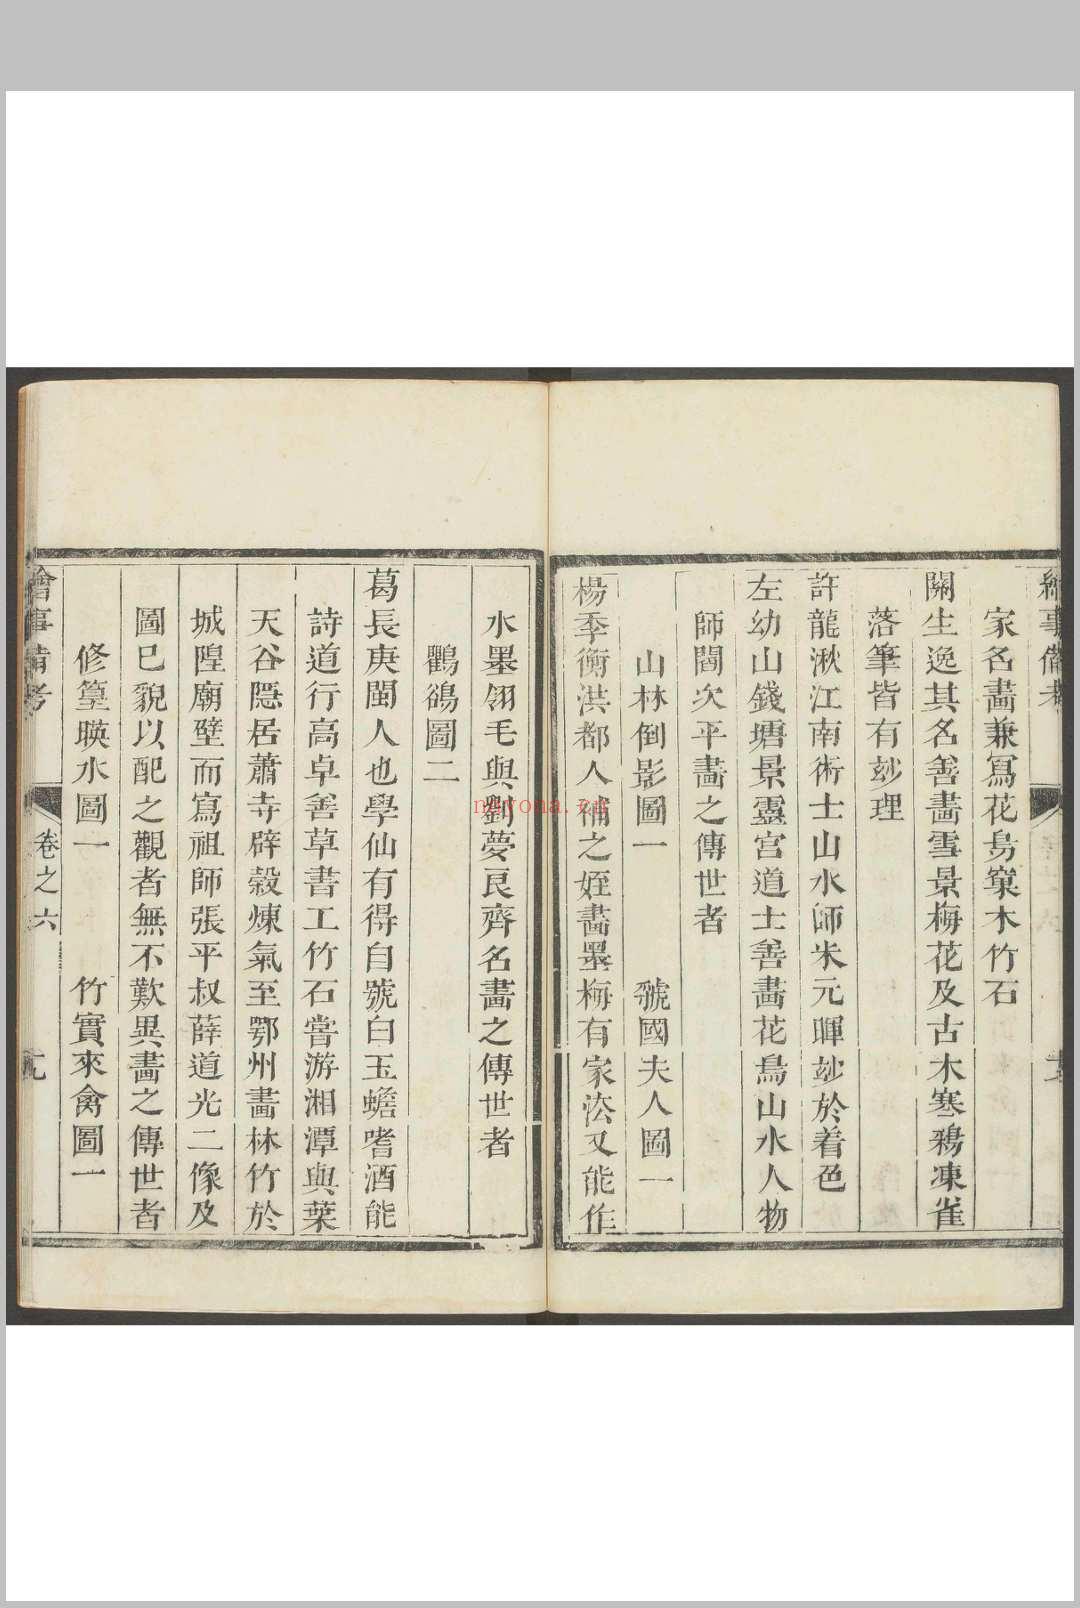 繪事備考
家名畵兼寫花鳥窠木竹石
關生逸其名善畵雪景梅花及古木寒鴉凍雀
落筆皆有玅理
許龍湫江南術士山水師米元暉玅於着色
左幼山錢塘景靈宮道士善畵花鳥山水人物
師閻次平畵之傳世者
山林倒影圖一　虢國夫人圖一
楊季衡洪都人補之姪畵墨梅有家法又能作
水墨翎毛與劉夢良齊名畵之傳世者
鸜鵒圖二
葛長庚閩人也學仙有得自號白玉蟾嗜酒能
詩道行高卓善草書工竹石嘗游湘潭與葉
天谷隱居蕭寺辟榖煉氣至鄂州畵林竹於
城隍廟壁而寫祖師張平叔薛道光二像及
圖巳貌以配之觀者無不歎異畵之傳世者
修篁暎水圖一　竹實來禽圖一
繪事備考
卷之六
nayona.cn